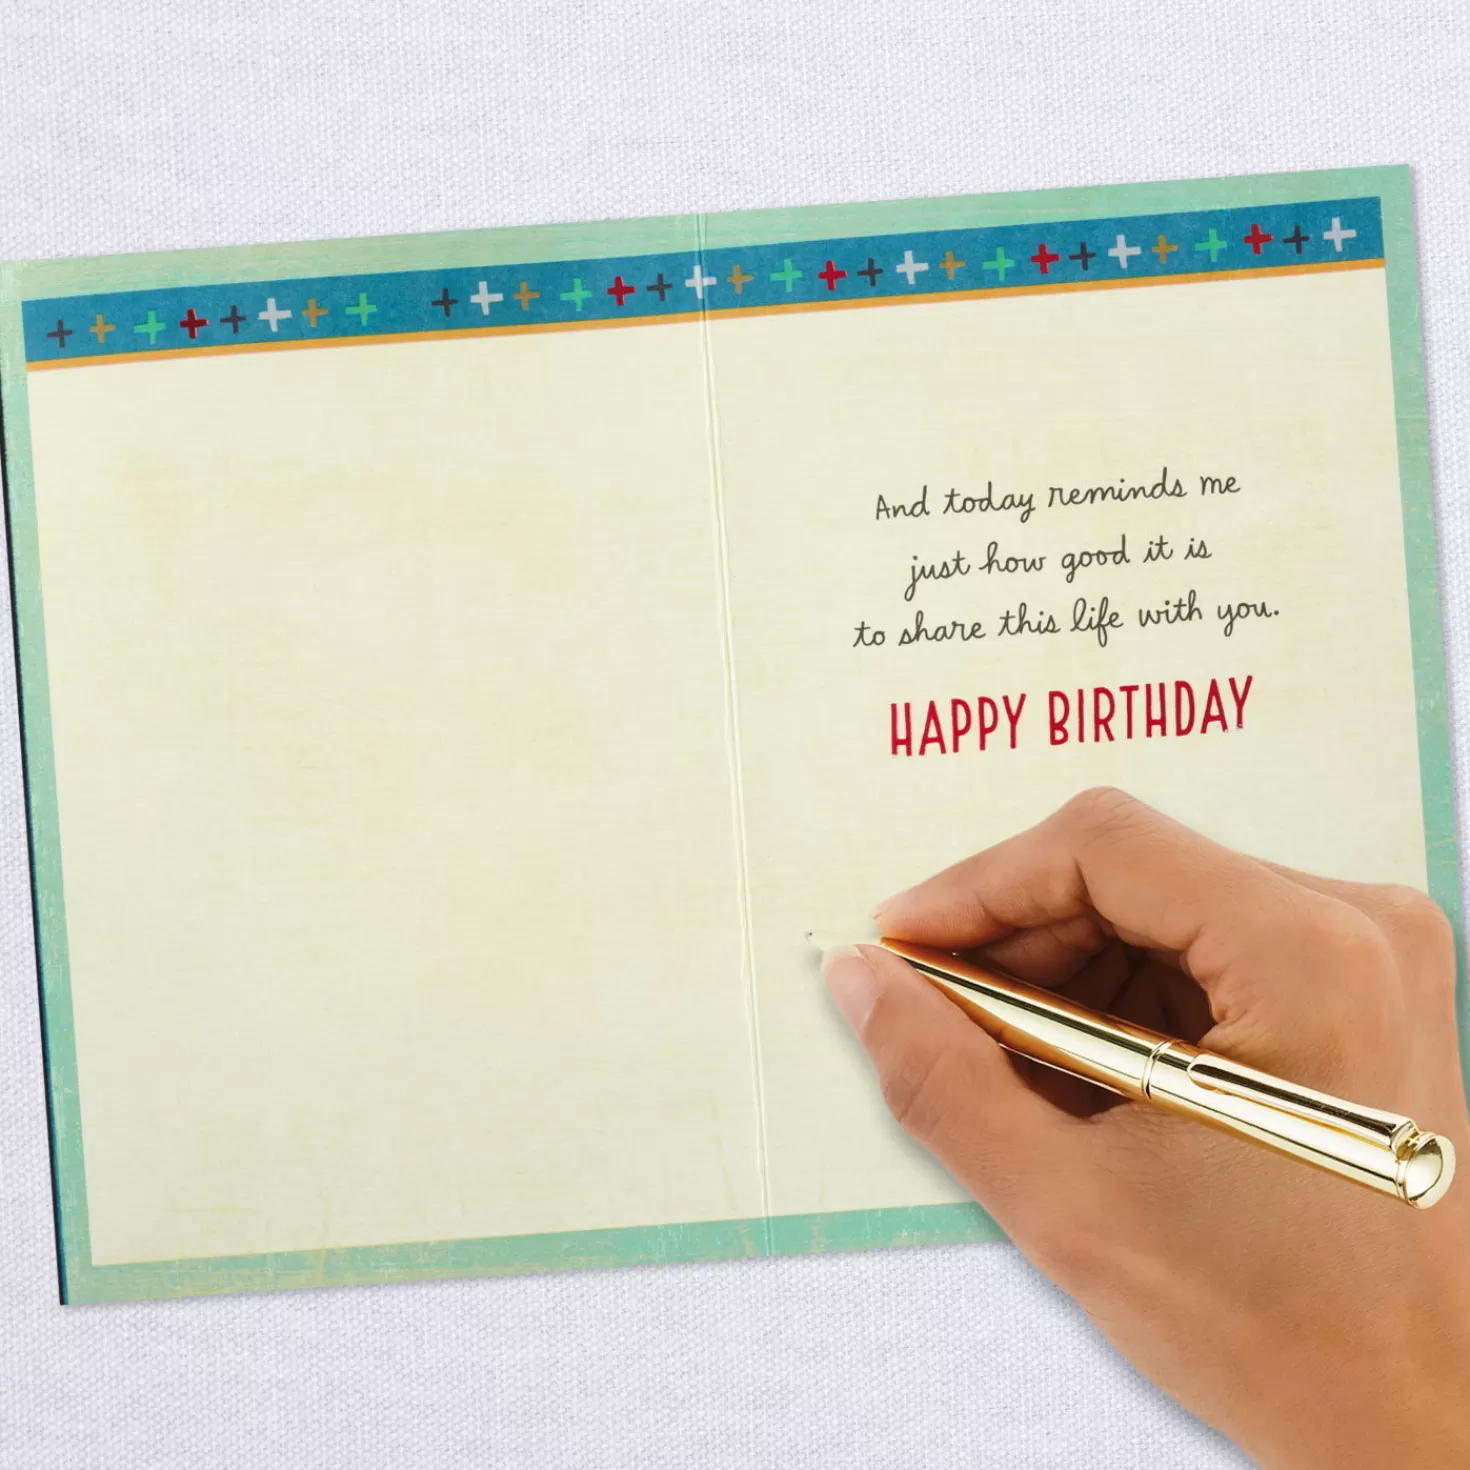 And today reminds me
just how good it is
to share this life with you.
HAPPY BIRTHDAY